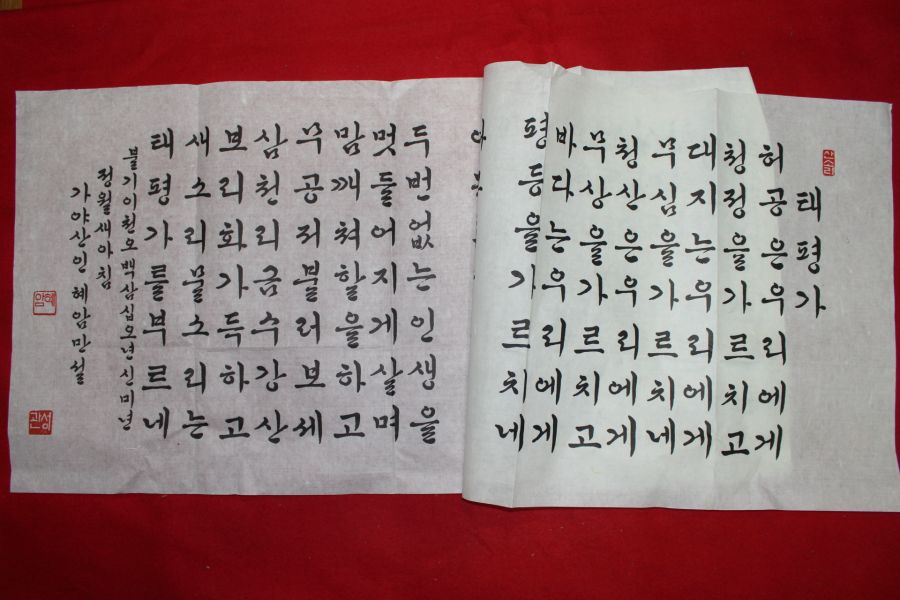 태평가
허공은우리에게
청정을가르치고
대지는우리에게
무심을가르치네
청산은우리에게
무상을가르치고
바다는우리에게
평등을가르치네
두번없는인생을
멋들어지게살며
맘깨쳐할을하고
무공저불러보세
심천리금수강산
보리화가득하고
새소리물소리는
태평가를부르네
불기이천오백삼십오년신미년
정월새아침
가야산인혜암만설
혜암
성관